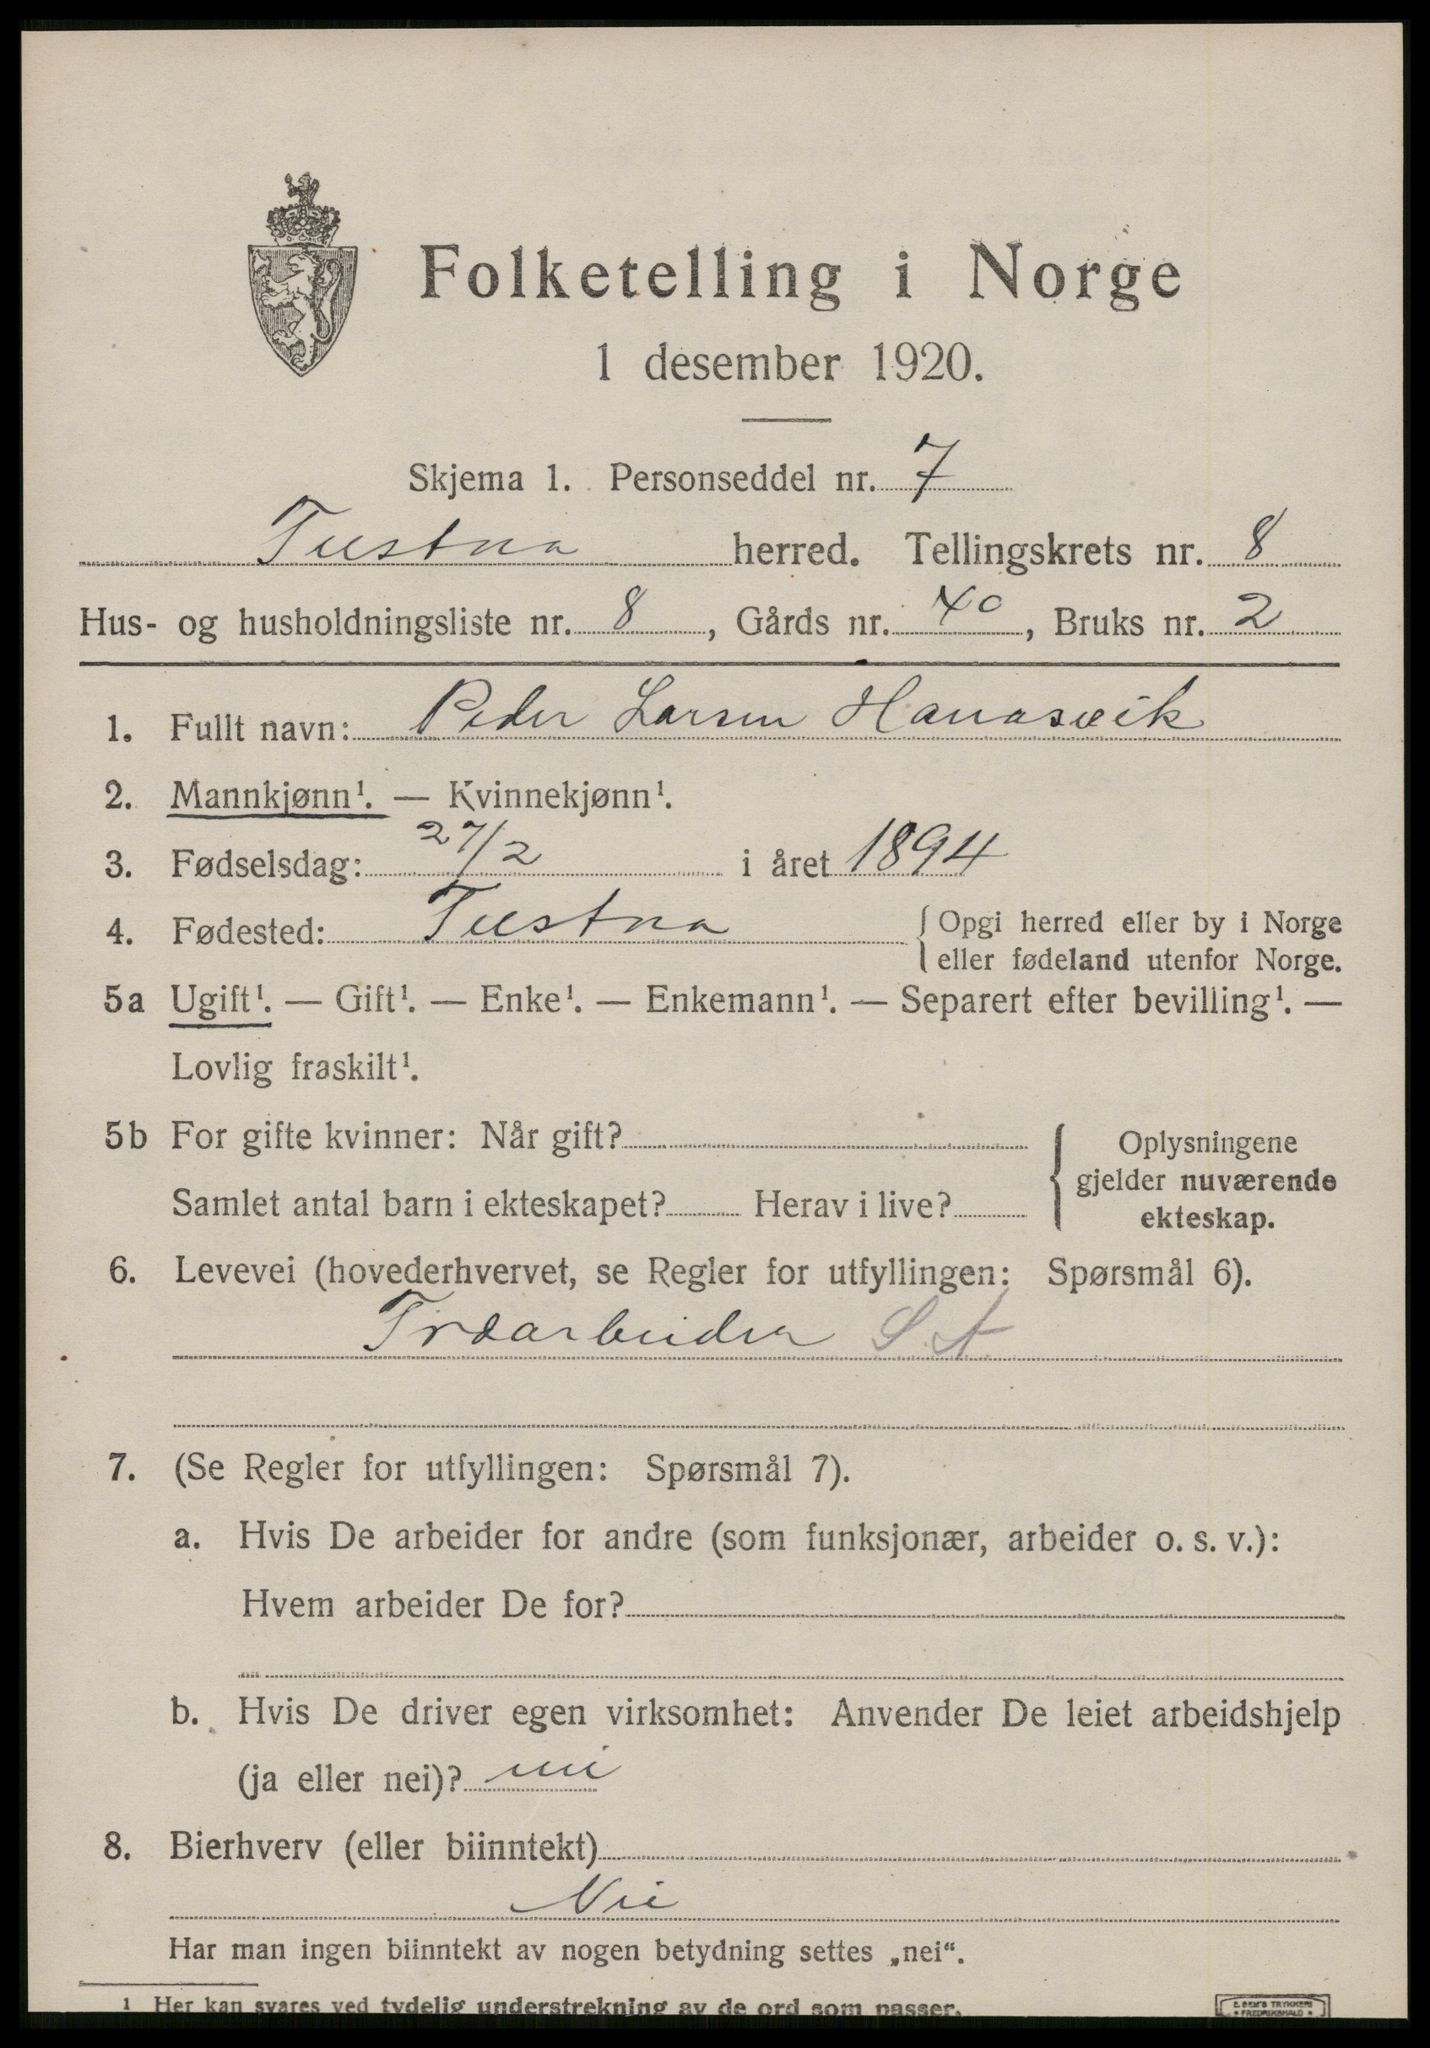 Folketelling i Norge
1 desember 1920.
Skjema 1. Personseddel nr. 7
Tustna herred. Tellingskrets nr. 8
Hus- og husholdningsliste nr. 8, Gårds nr. 40, Bruks nr. 2
1. Fullt navn: Peder Larsen Hanasvik
2. Mannkjønn¹. — Kvinnekjønn¹.
3. Fødselsdag: 27/2 i året 1894
4. Fødested: Tustna { Opgi herred eller by i Norge
eller fødeland utenfor Norge.
5a Ugift¹. — Gift¹. — Enke¹. — Enkemann¹. — Separert efter bevilling¹. —
Lovlig fraskilt¹.
5b For gifte kvinner: Når gift?
Samlet antal barn i ekteskapet? Herav i live?
Oplysningene
gjelder nuværende
ekteskap.
6. Levevei (hovederhvervet, se Regler for utfyllingen: Spørsmål 6).
Træarbeider S. A.
7. (Se Regler for utfyllingen: Spørsmål 7).
a. Hvis De arbeider for andre (som funksjonær, arbeider o. s. v.):
Hvem arbeider De for?
b. Hvis De driver egen virksomhet: Anvender De leiet arbeidshjelp
(ja eller nei)? nei
8. Bierhverv (eller biinntekt)
Nei
Har man ingen biinntekt av nogen betydning settes „nei“.
¹ Her kan svares ved tydelig understrekning av de ord som passer.
E. SEM'S TRYKKERI
* FREDRIKSHALD *